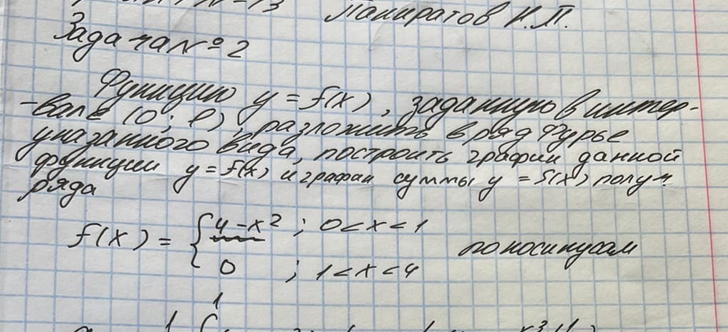 Панкратов И.П.
Задача № 2
Функцию y = f(x), заданную в интер-
-вале (0; l), разложить в ряд Фурье
указанного вида, построить график данной
функции y = f(x) и график суммы y = S(x) получ.
ряда
f(x) = { 4 - x² ; 0 < x < 1 по косинусам
0 ; 1 < x < 4